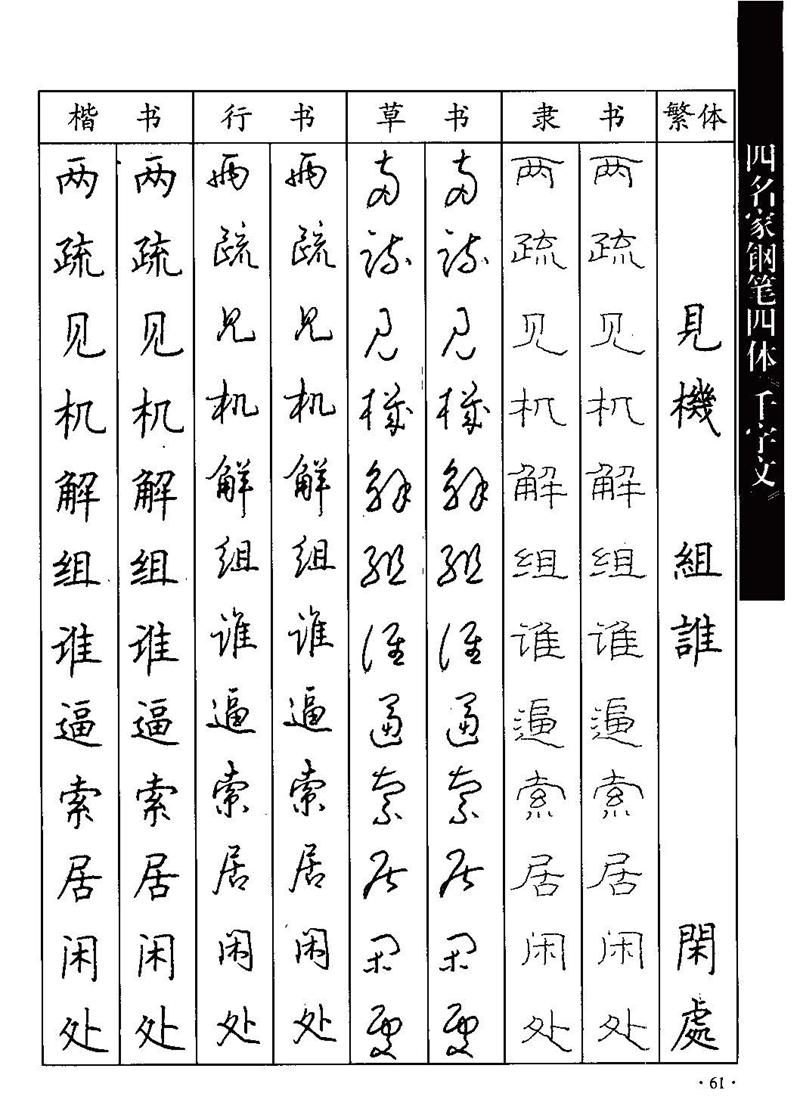 楷书 行书 草书 隶书 繁体
两 两 两 两 两 两 两 两
疏 疏 疏 疏 疏 疏 疏 疏
见 见 见 见 见 见 见 见 見
机 机 机 机 機 機 机 机 機
解 解 解 解 解 解 解 解
组 组 组 组 组 组 组 组 組
谁 谁 谁 谁 谁 谁 谁 谁 誰
逼 逼 逼 逼 逼 逼 逼 逼
索 索 索 索 索 索 索 索
居 居 居 居 居 居 居 居
闲 闲 闲 闲 闲 闲 闲 闲 閑
处 处 处 处 處 處 处 处 處
四名家钢笔四体《千字文》
·61·